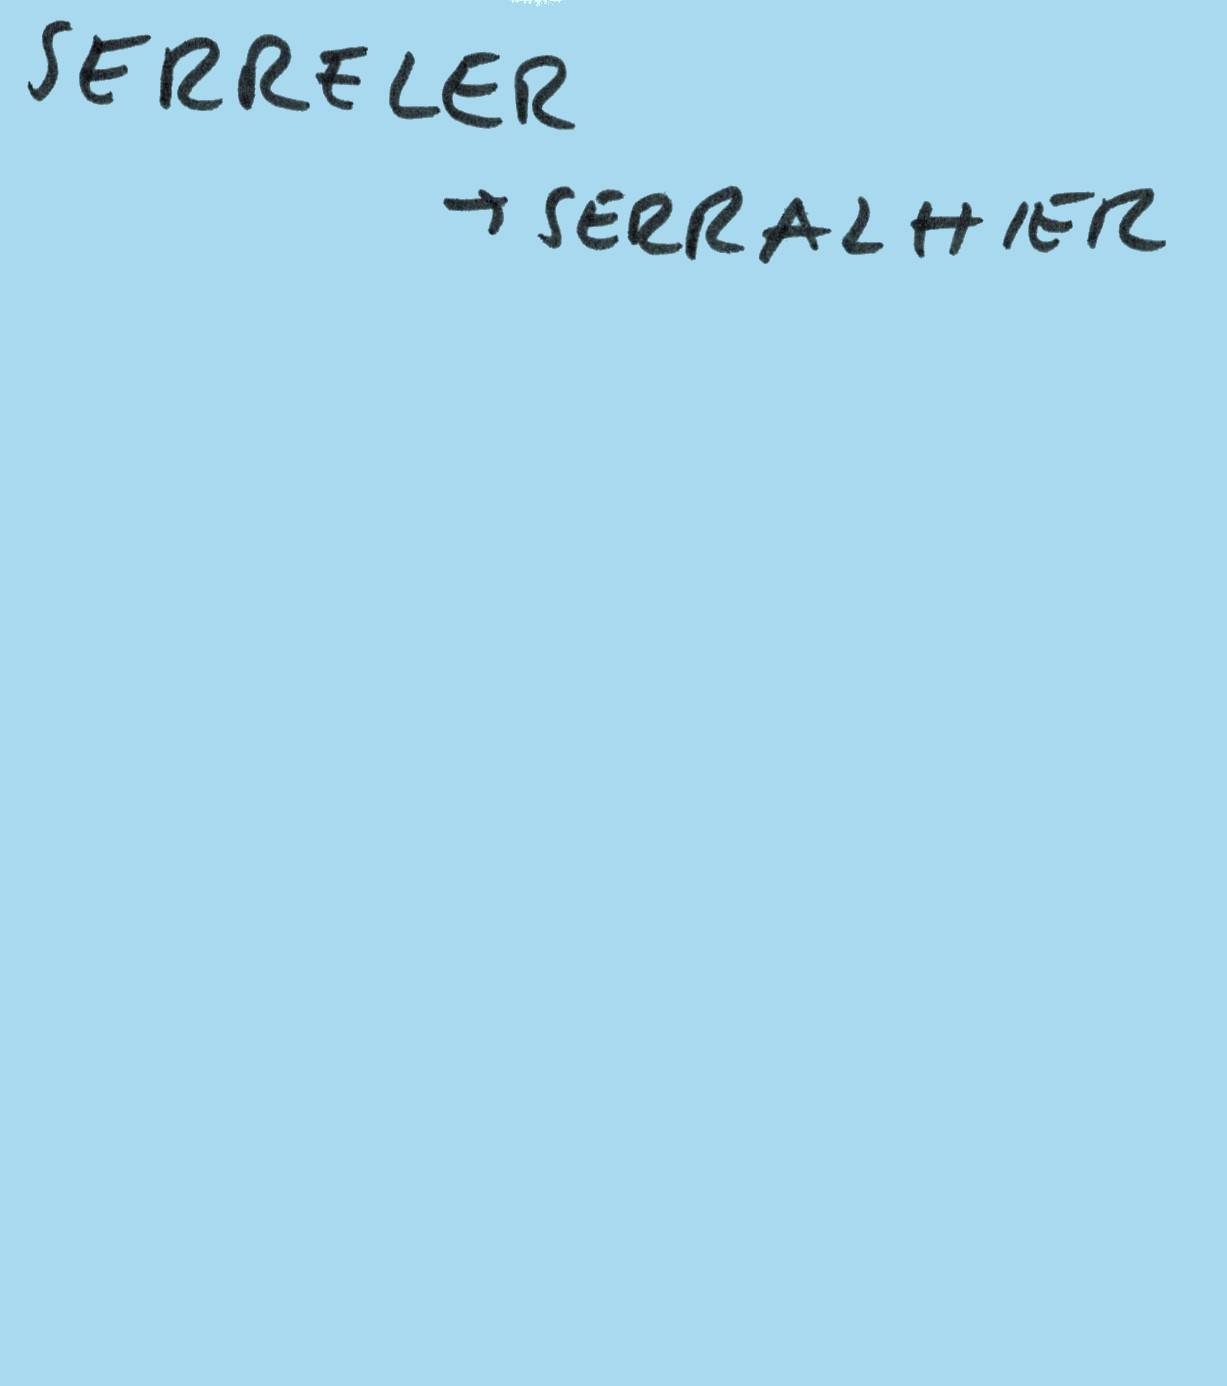 SERRELER
→ SERRALHIER